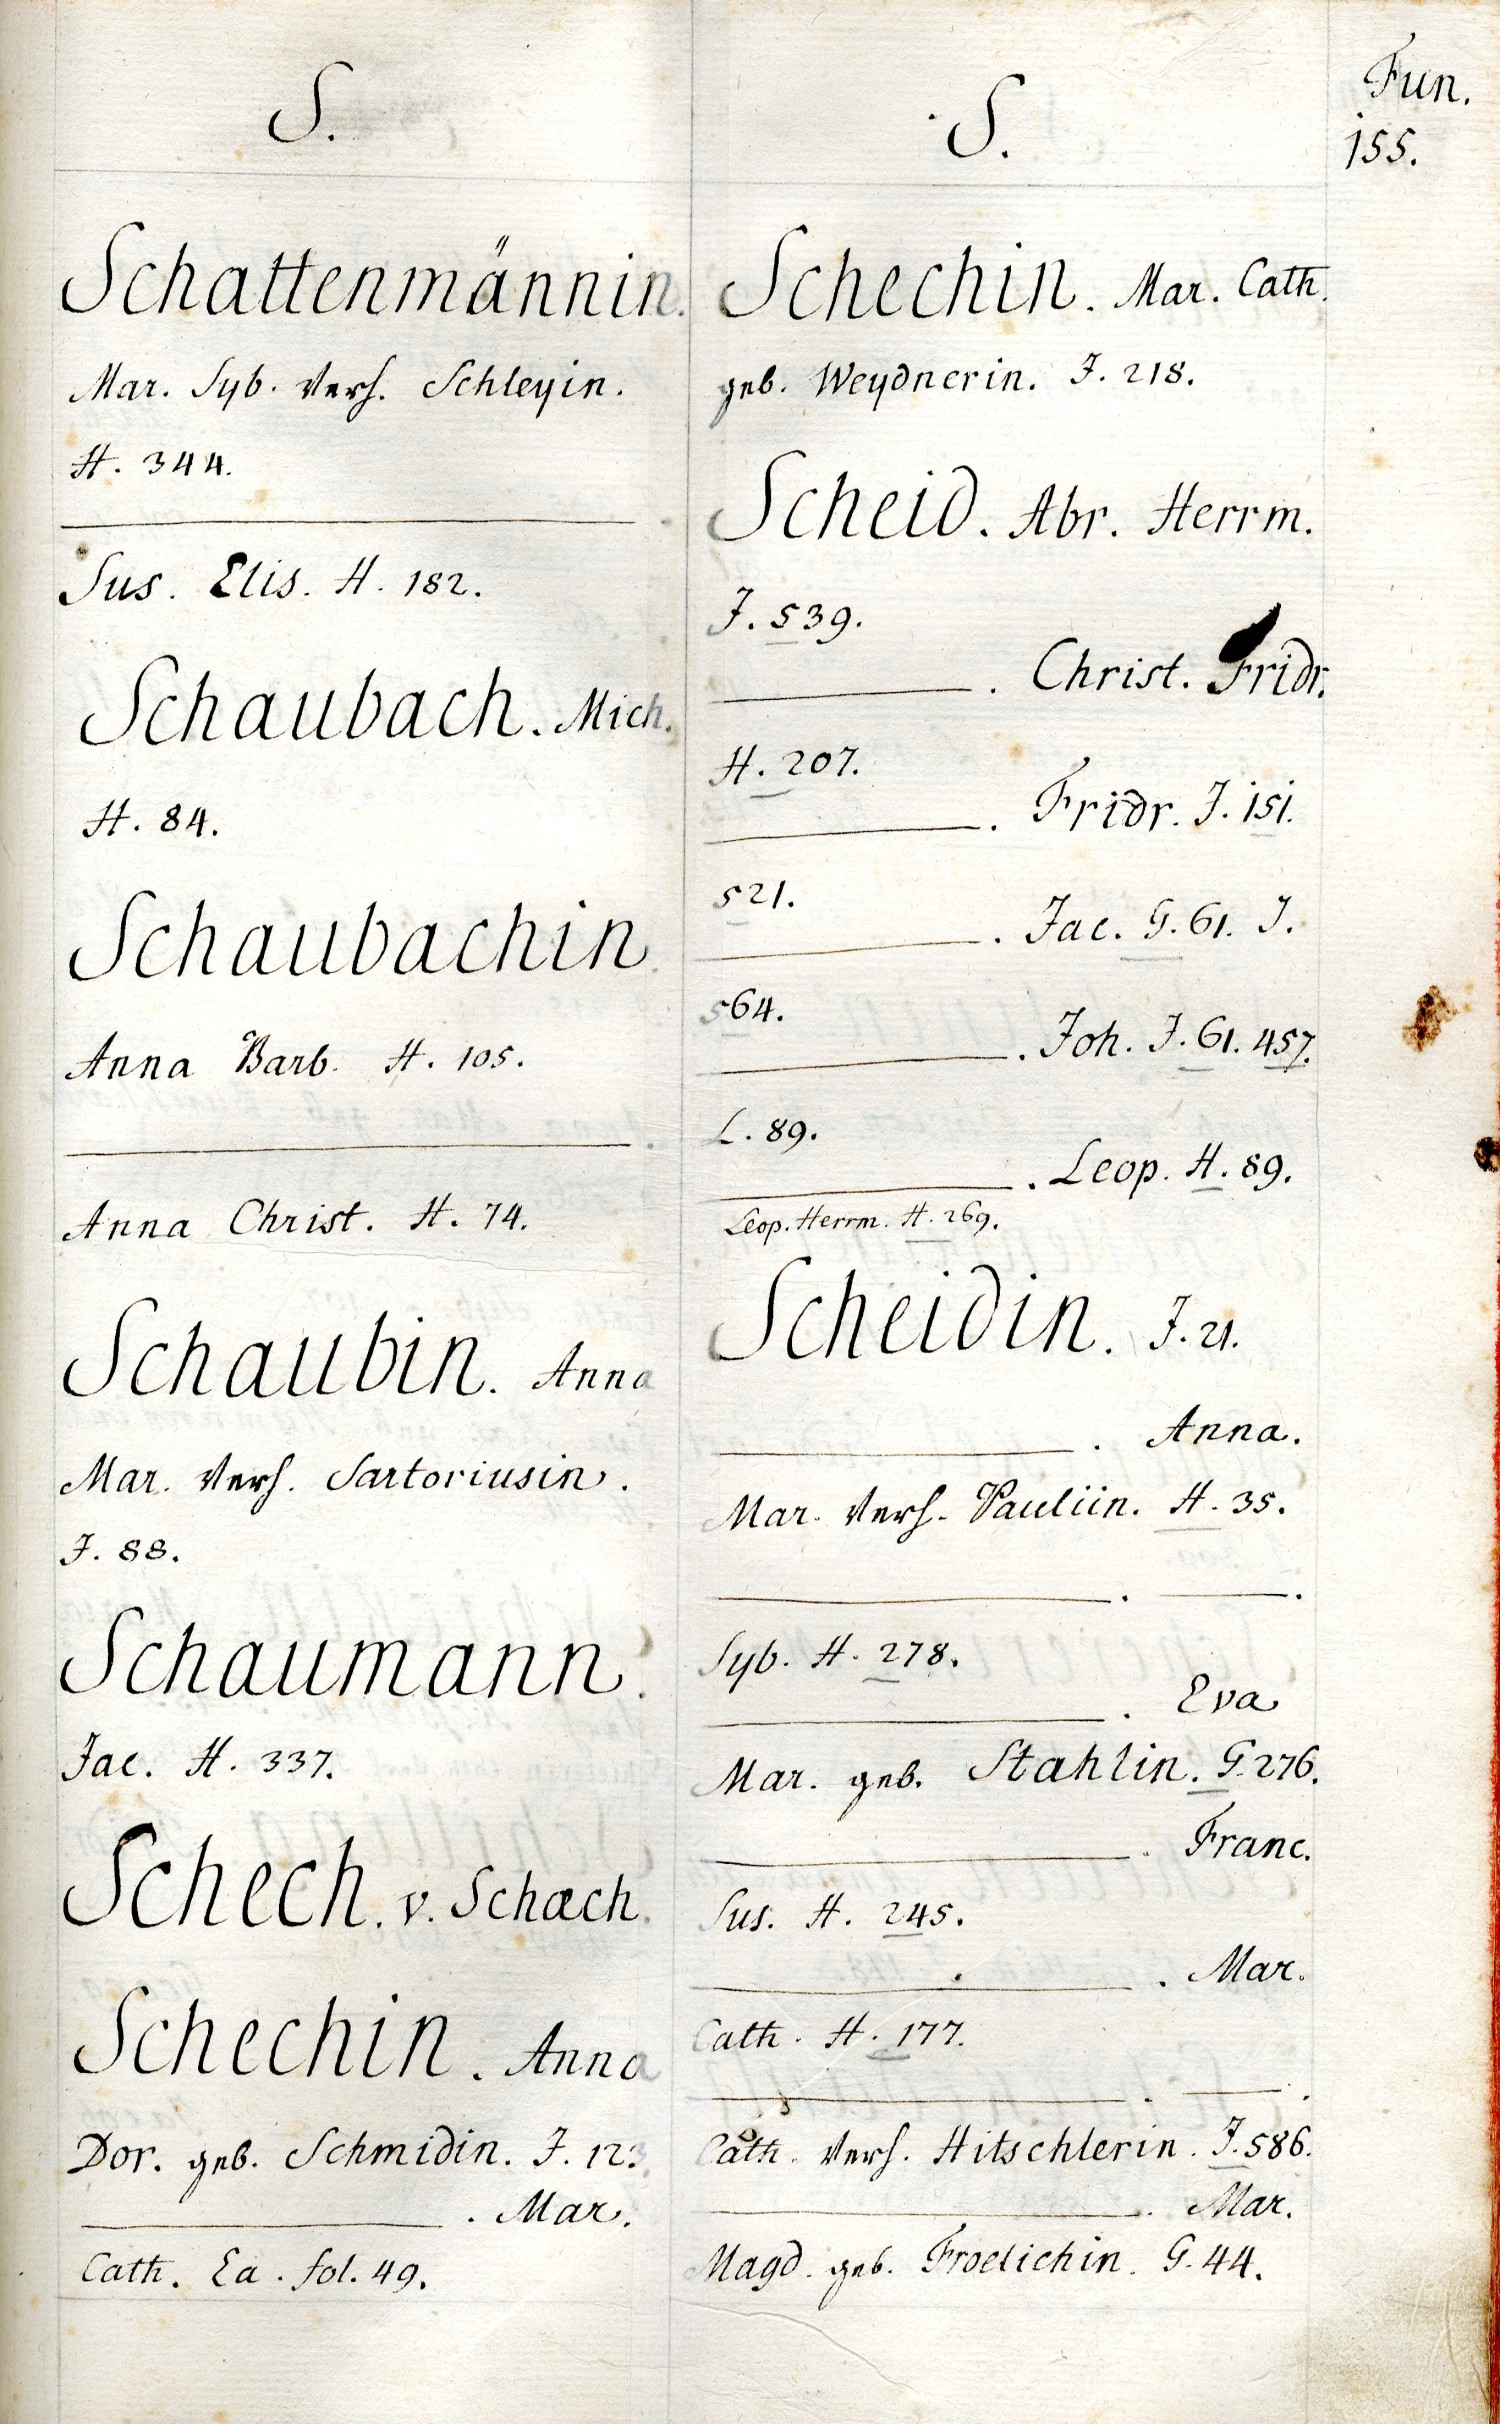 S.
Schattenmännin.
Mar. Syb. verh. Schleyin.
H. 344.
Sus. Elis. H. 182.
Schaubach. Mich.
H. 84.
Schaubachin.
Anna Barb. H. 105.
Anna Christ. H. 74.
Schaubin. Anna
Mar. verh. Sartoriusin.
J. 88.
Schaumann.
Jac. H. 337.
Schech. v. Schæch.
Schechin. Anna
Dor. geb. Schmidin. J. 123.
. Mar.
Cath. Ea. fol. 49.
S.
Schechin. Mar. Cath.
geb. Weydnerin. J. 218.
Scheid. Abr. Herrm.
J. 539.
. Christ. Fridr.
H. 207.
. Fridr. J. 151.
521.
. Jac. G. 61. J.
564.
. Joh. J. 61. 457.
L. 89.
. Leop. H. 89.
Leop. Herrm. H. 269.
Scheidin. J. 21.
. Anna.
Mar. verh. Pauliin. H. 35.
Syb. H. 278.
. Eva
Mar. geb. Stahlin. G. 276.
. Franc.
Sus. H. 245.
. Mar.
Cath. H. 177.
Cath. verh. Hitschlerin. J. 586.
. Mar.
Magd. geb. Froelichin. G. 44.
Fun.
155.